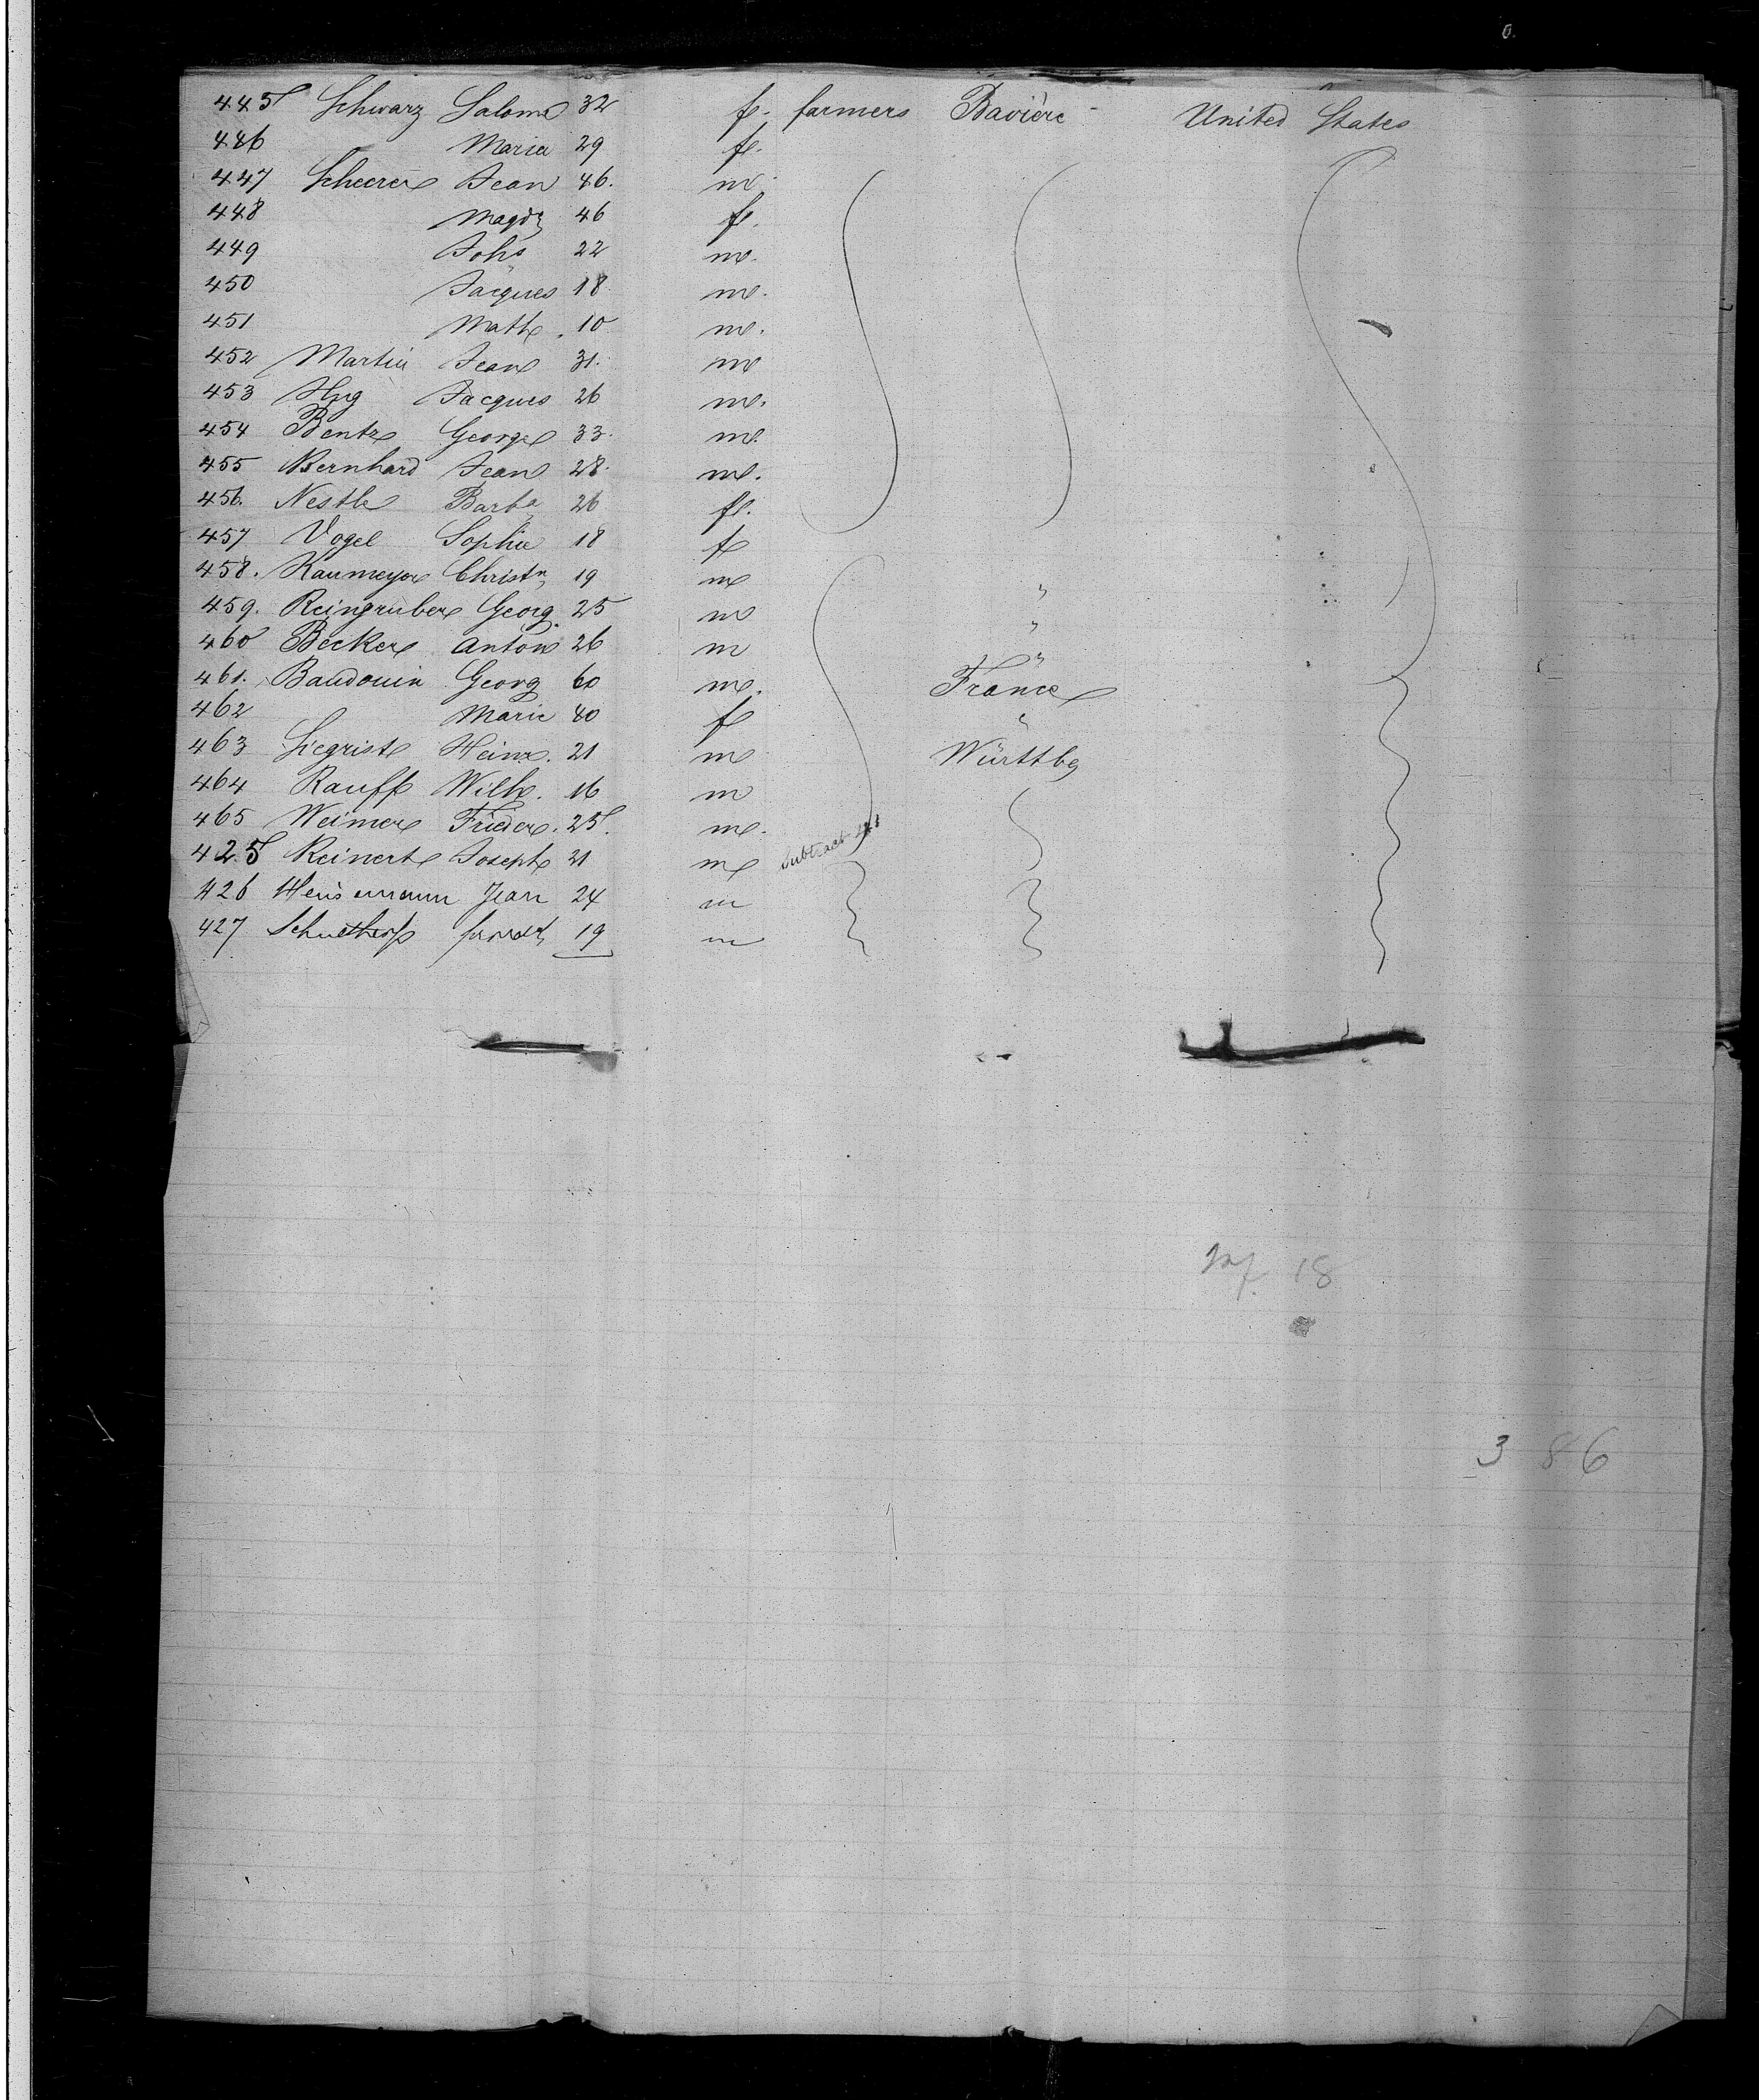 445 Schwarz Salome 32 f. farmers Bavière United States
446 Maria 29 f.
447 Scheerer Jean 46. m
448 Magd 46 f.
449 Johs 22 m.
450 Jacques 18 m.
451 Math. 10 m.
452 Martin Jean 31. m
453 Hug Jacques 26 m.
454 Bentz George 33. m.
455 Bernhard Jean 28. m.
456. Nestle Barba 26 f.
457 Vogel Sophie 18 f
458. Christn 19 m "
459. Reingruber Georg. 25 m "
460 Becker Anton 26 m "
461. Baudouin Georg 60 m. France
462 Marie 40 f "
463 Siegrist Heinr. 21 m Württbg
464 Rauff Wilh. 16 m
465 Weimer Frieder. 25. m.
Subtract
425 Reinert Joseph 21 m
426 Jean 24 m
427 19 m
18
3 86